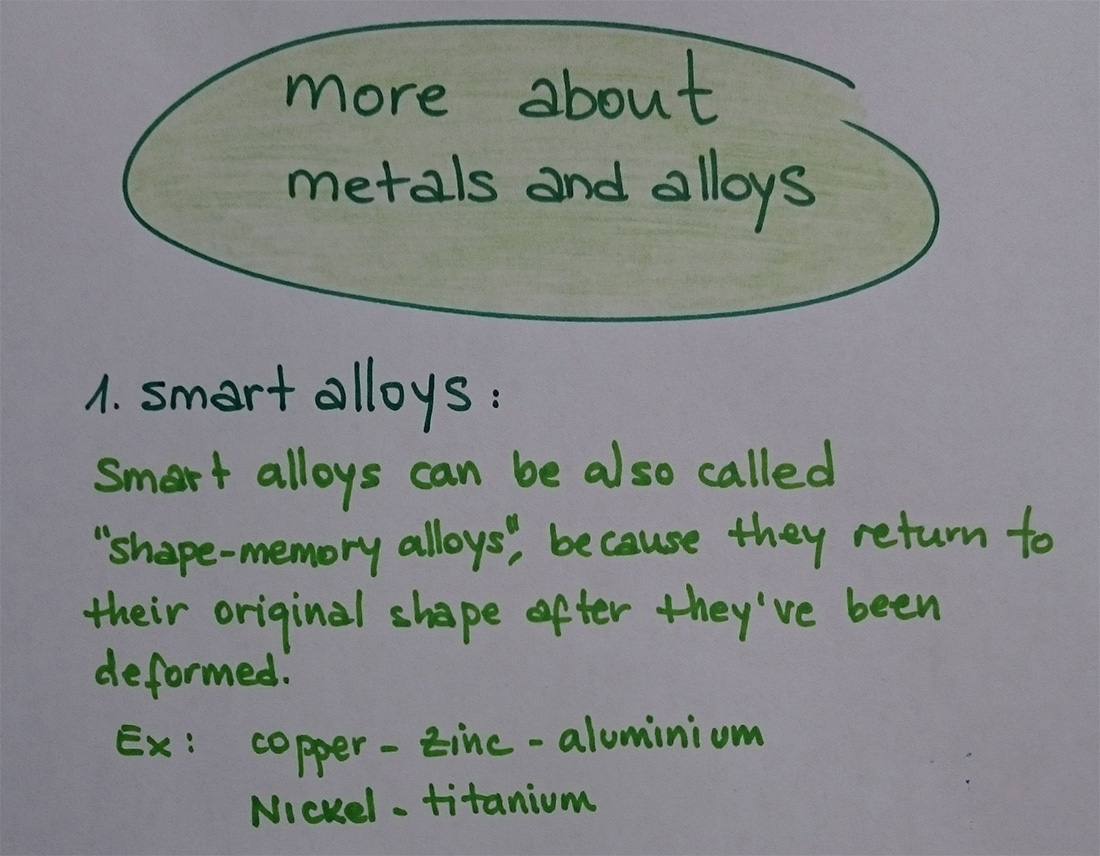 more about
metals and alloys
1. smart alloys :
Smart alloys can be also called
"shape-memory alloys", because they return to
their original shape after they've been
deformed.
Ex : copper - zinc - aluminium
Nickel - titanium